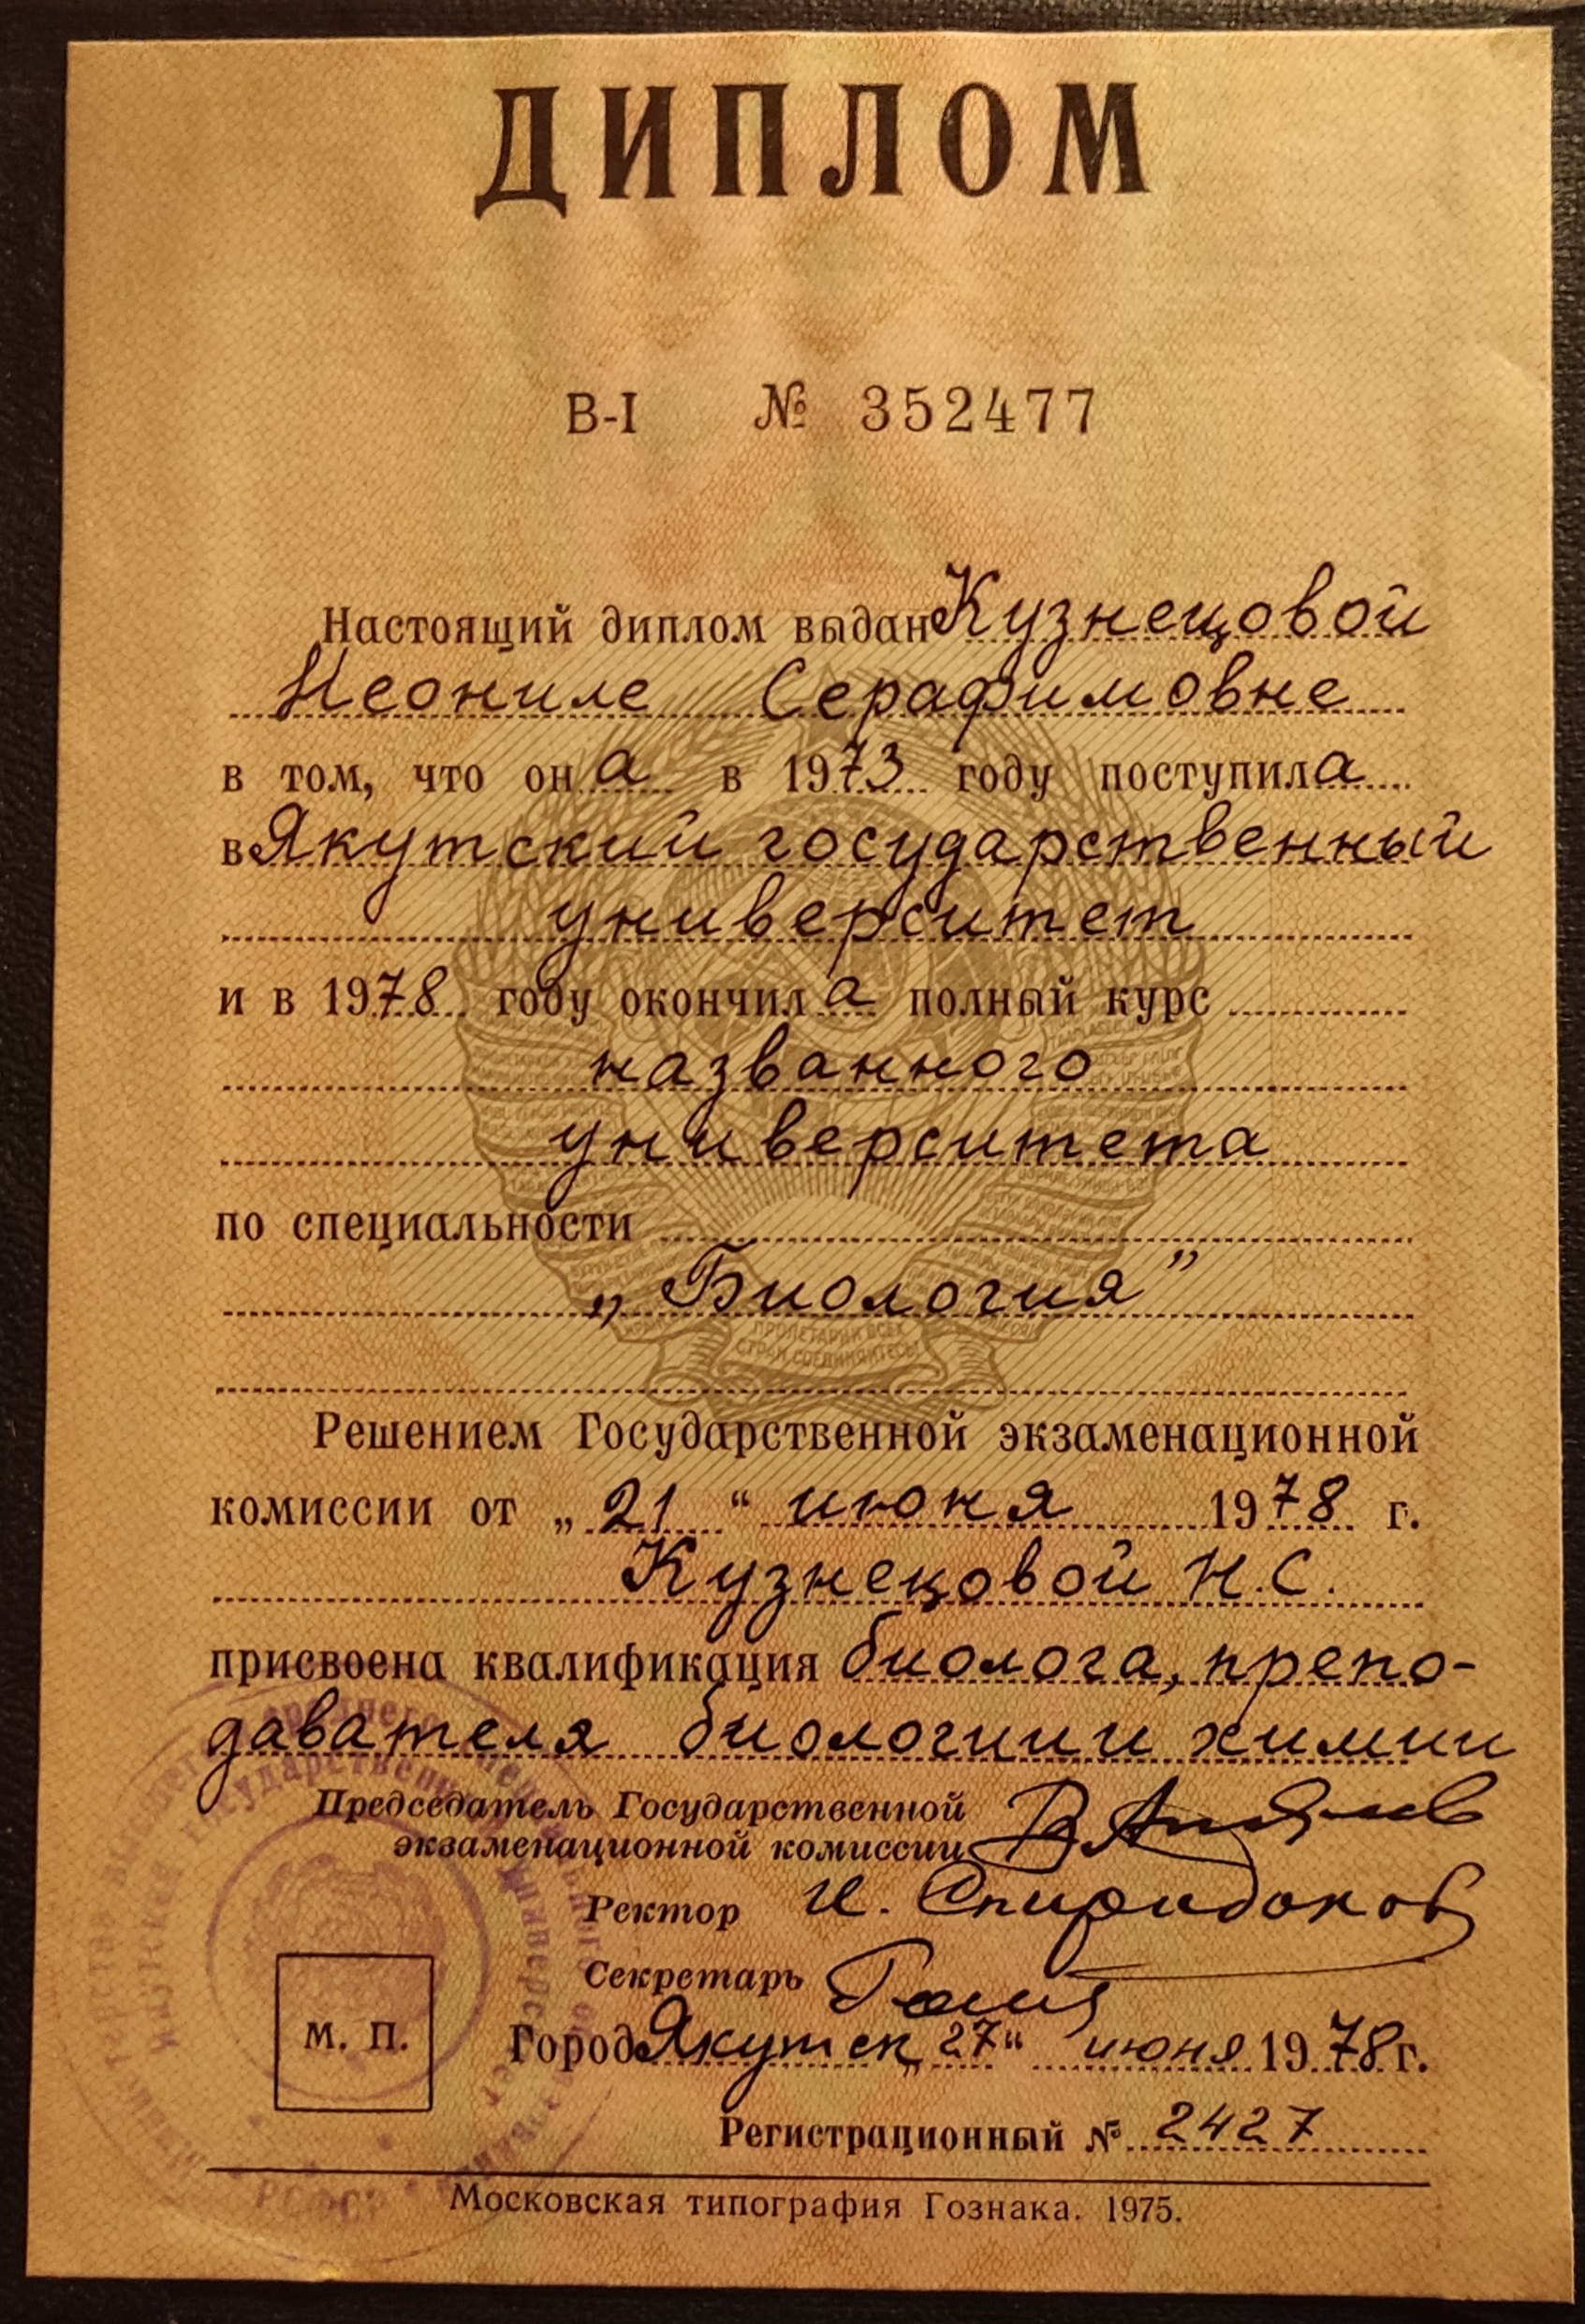 ДИПЛОМ
В-I № 352477
Настоящий диплом выдан Кузнецовой
Неониле Серафимовне
в том, что она в 1973 году поступила
в Якутский государственный
университет
и в 1978 году окончила полный курс
названного
университета
по специальности
„Биология”
Решением Государственной экзаменационной
комиссии от „21“ июня 1978 г.
Кузнецовой Н.С.
присвоена квалификация биолога, препо-
давателя биологии и химии
Председатель Государственной
экзаменационной комиссии
Ректор И. Спиридонов
Секретарь
Город Якутск „27“ июня 1978 г.
М. П.
Регистрационный № 2427
Московская типография Гознака. 1975.
ПРОЛЕТАРИИ ВСЕХ
СТРАН, СОЕДИНЯЙТЕСЬ!
РСФСР